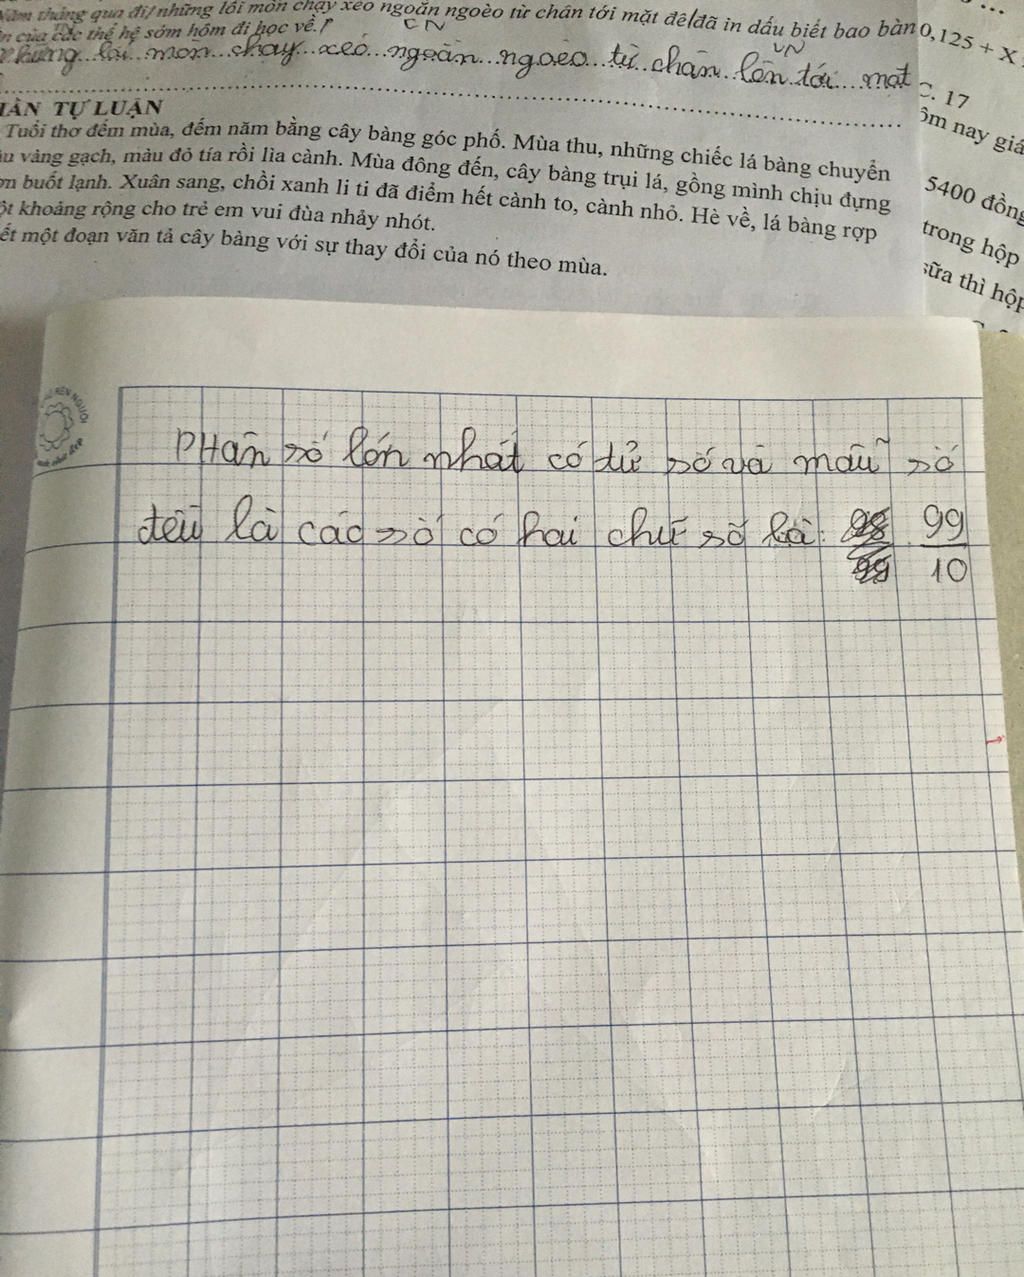 tháng qua đi/ những lối mòn chạy xéo ngoằn ngoèo từ chân tới mặt đê/đã in dấu biết bao bàn
của các thế hệ sớm hôm đi học về./
CN
VN
Những lối mòn chạy xéo ngoằn ngoèo từ chân lên tới mặt
TỰ LUẬN
Tuổi thơ đếm mùa, đếm năm bằng cây bàng góc phố. Mùa thu, những chiếc lá bàng chuyển
vàng gạch, màu đỏ tía rồi lìa cành. Mùa đông đến, cây bàng trụi lá, gồng mình chịu đựng
buốt lạnh. Xuân sang, chồi xanh li ti đã điểm hết cành to, cành nhỏ. Hè về, lá bàng rợp
khoảng rộng cho trẻ em vui đùa nhảy nhót.
một đoạn văn tả cây bàng với sự thay đổi của nó theo mùa.
0,125 + X
C. 17
nay giá
5400 đồng
trong hộp
sữa thì hộp
PHân số lớn nhất có tử số và mẫu số
đều là các số có hai chữ số là: 99
10